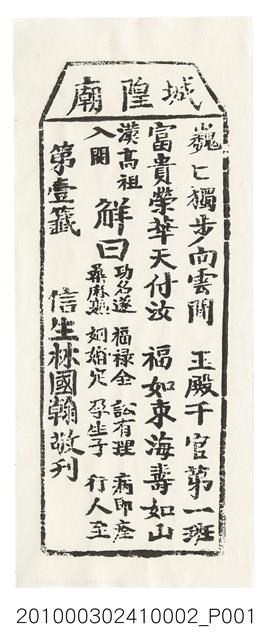 城隍廟
巍匕獨步向雲間 玉殿千官第一班
富貴榮華天付汝 福如東海壽如山
漢高祖
入關
解曰
功名遂 福祿全 訟有理 病即痊
桑麻熟 姻婚定 孕生子 行人至
第壹籤 信生林國翰敬刊
201000302410002_P001